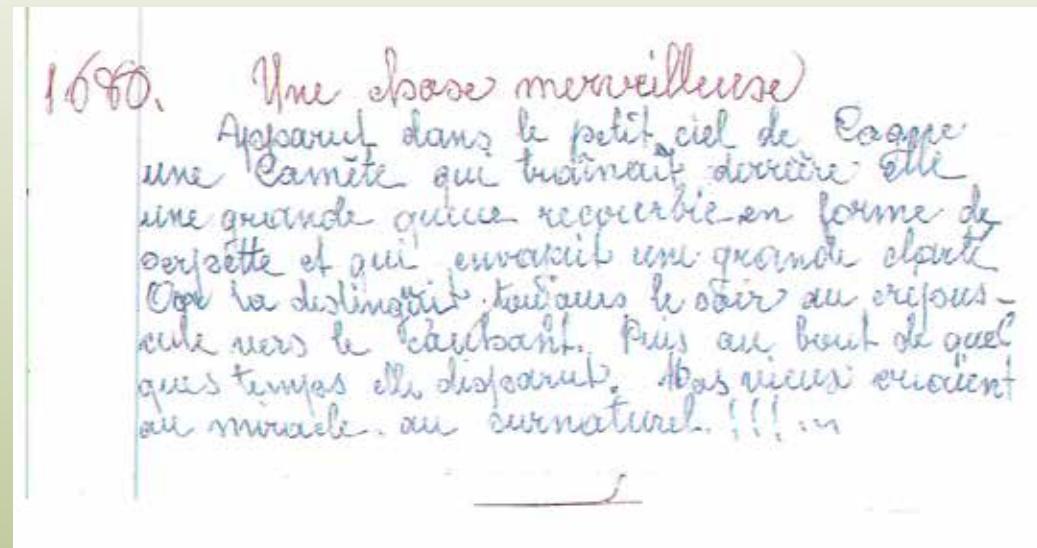 1680. Une chose merveilleuse
Apparut dans le petit ciel de Cogne
une Comète qui traînait derrière Elle
une grande queue recourbée en forme de
serpette et qui envoyait une grande clarté
On la distinguait toujours le soir au crépus-
cule vers le couchant. Puis au bout de quel
ques temps elle disparut. Nos vieux criaient
au miracle. au surnaturel. !!! ...